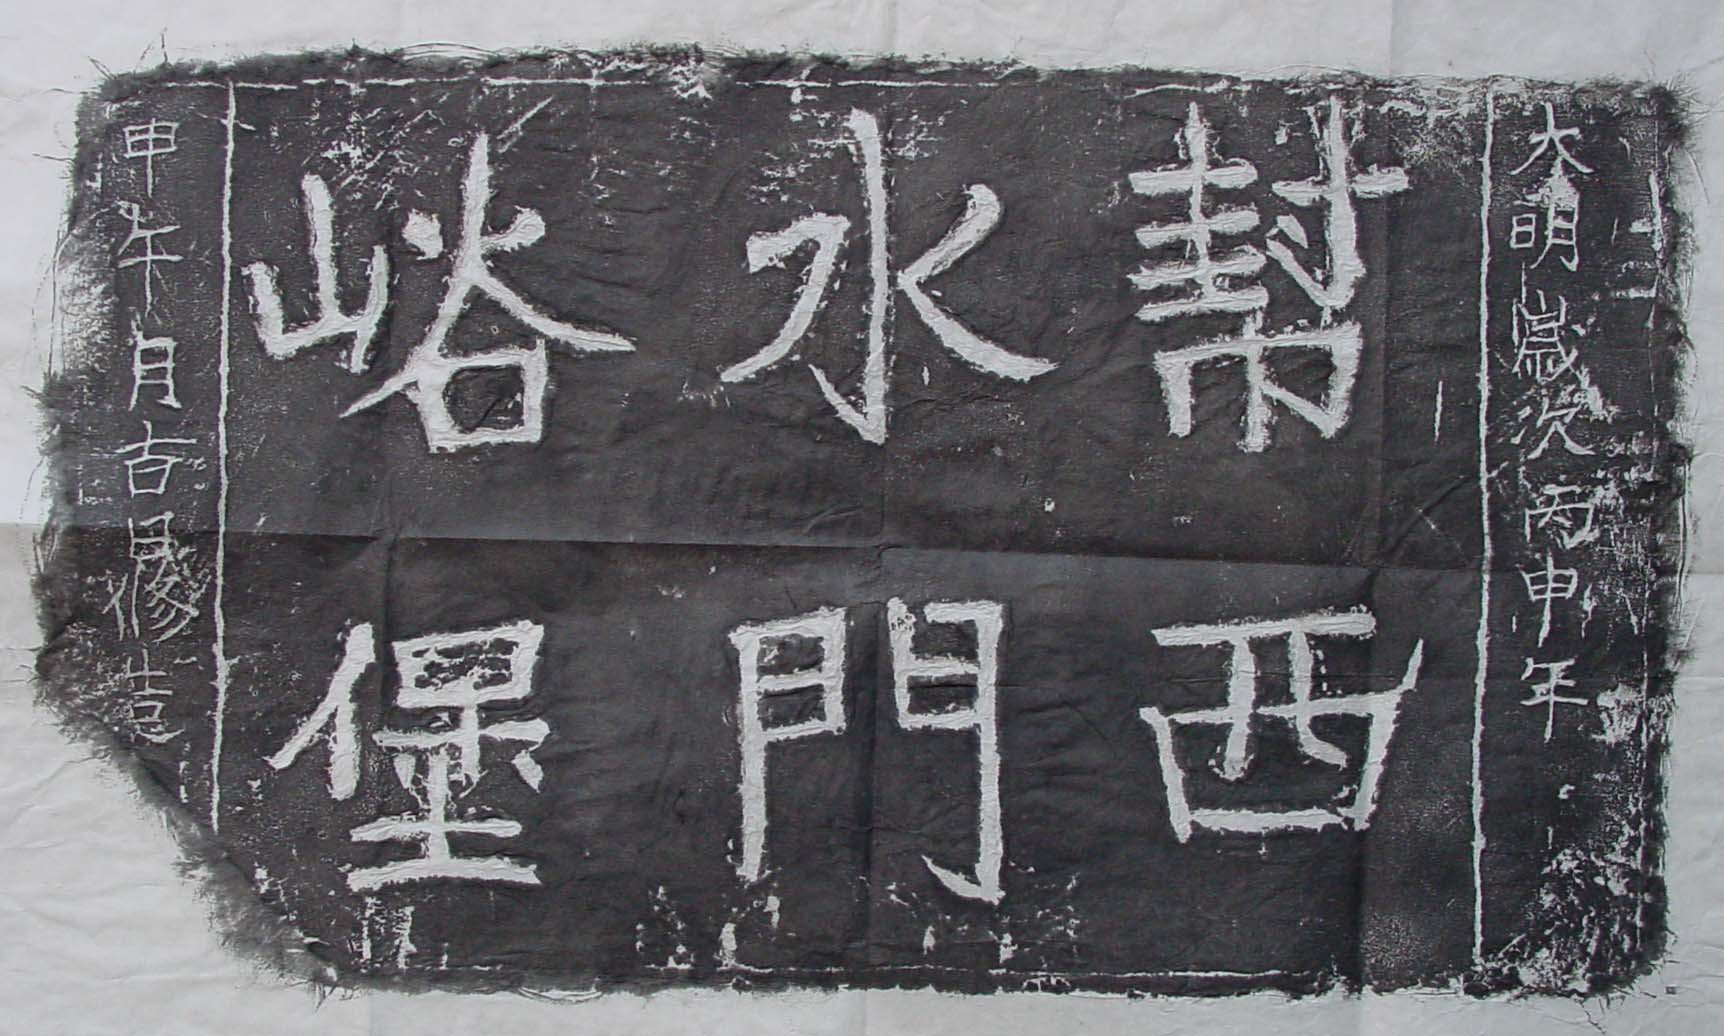 大明歲次丙申年
幇水峪
西門堡
甲午月吉日修造